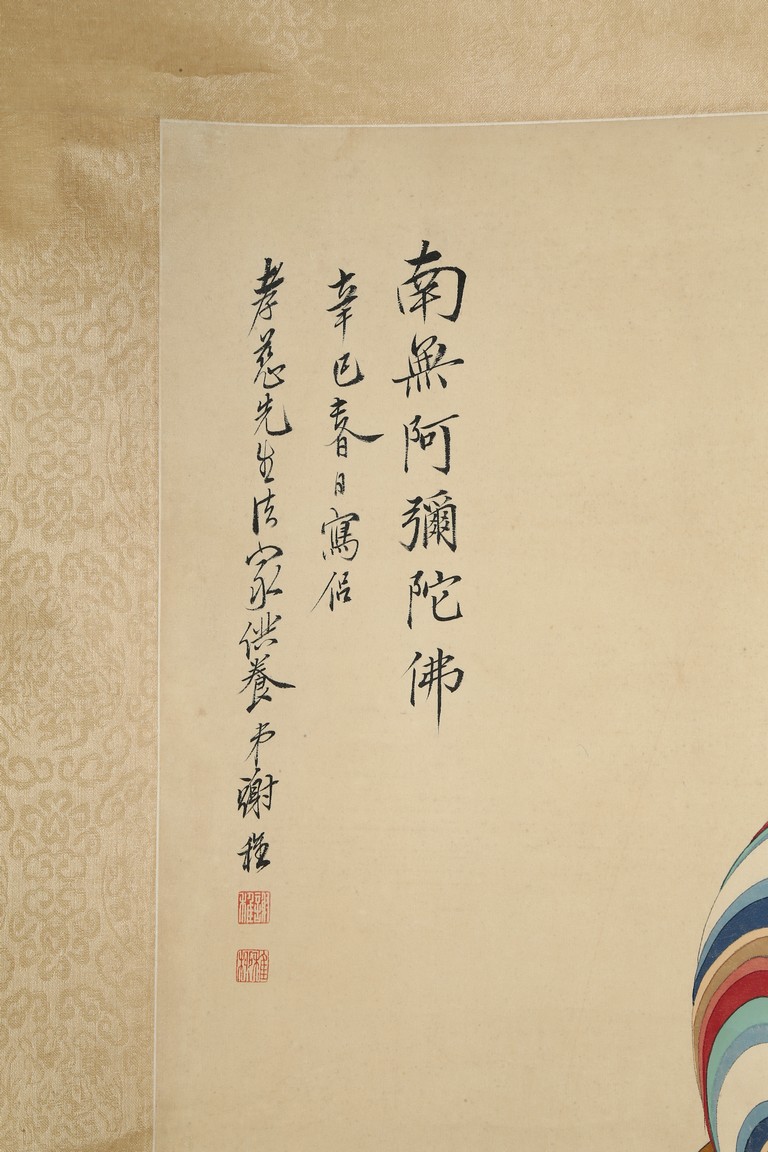 南無阿彌陀佛
辛巳春日寫侶
孝慈先生法家供養弟謝稚